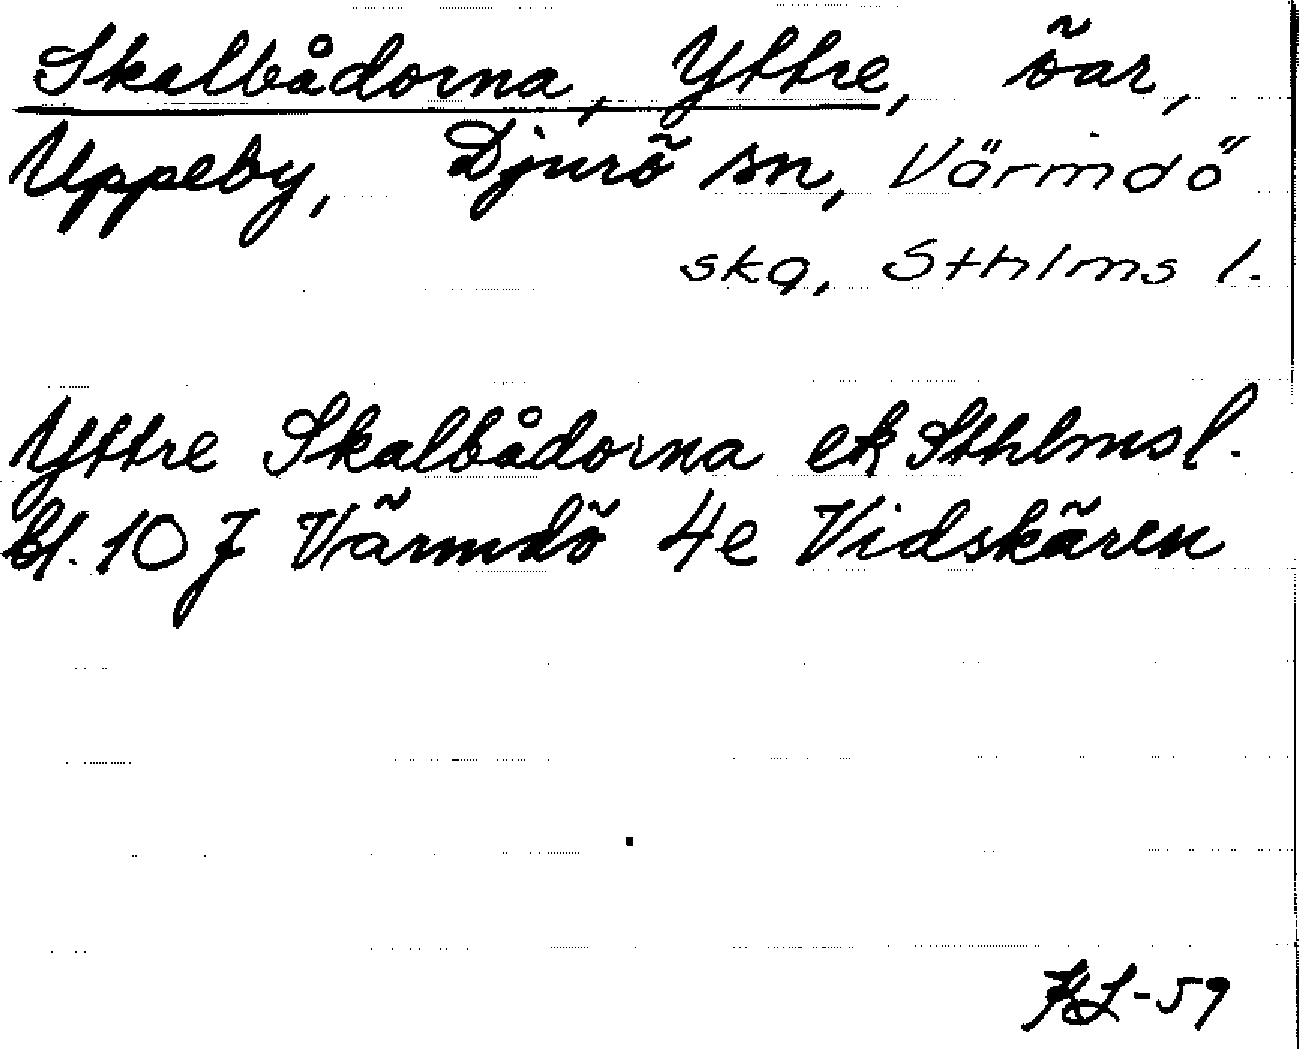 Skalbådorna, Yttre, öar,
Uppeby, Djurö sn, Värmdö
skg, Sthlms l.
Yttre Skalbådorna ek Sthlmsl.
bl. 107 Värmdö 4e Vidskären
KL-59